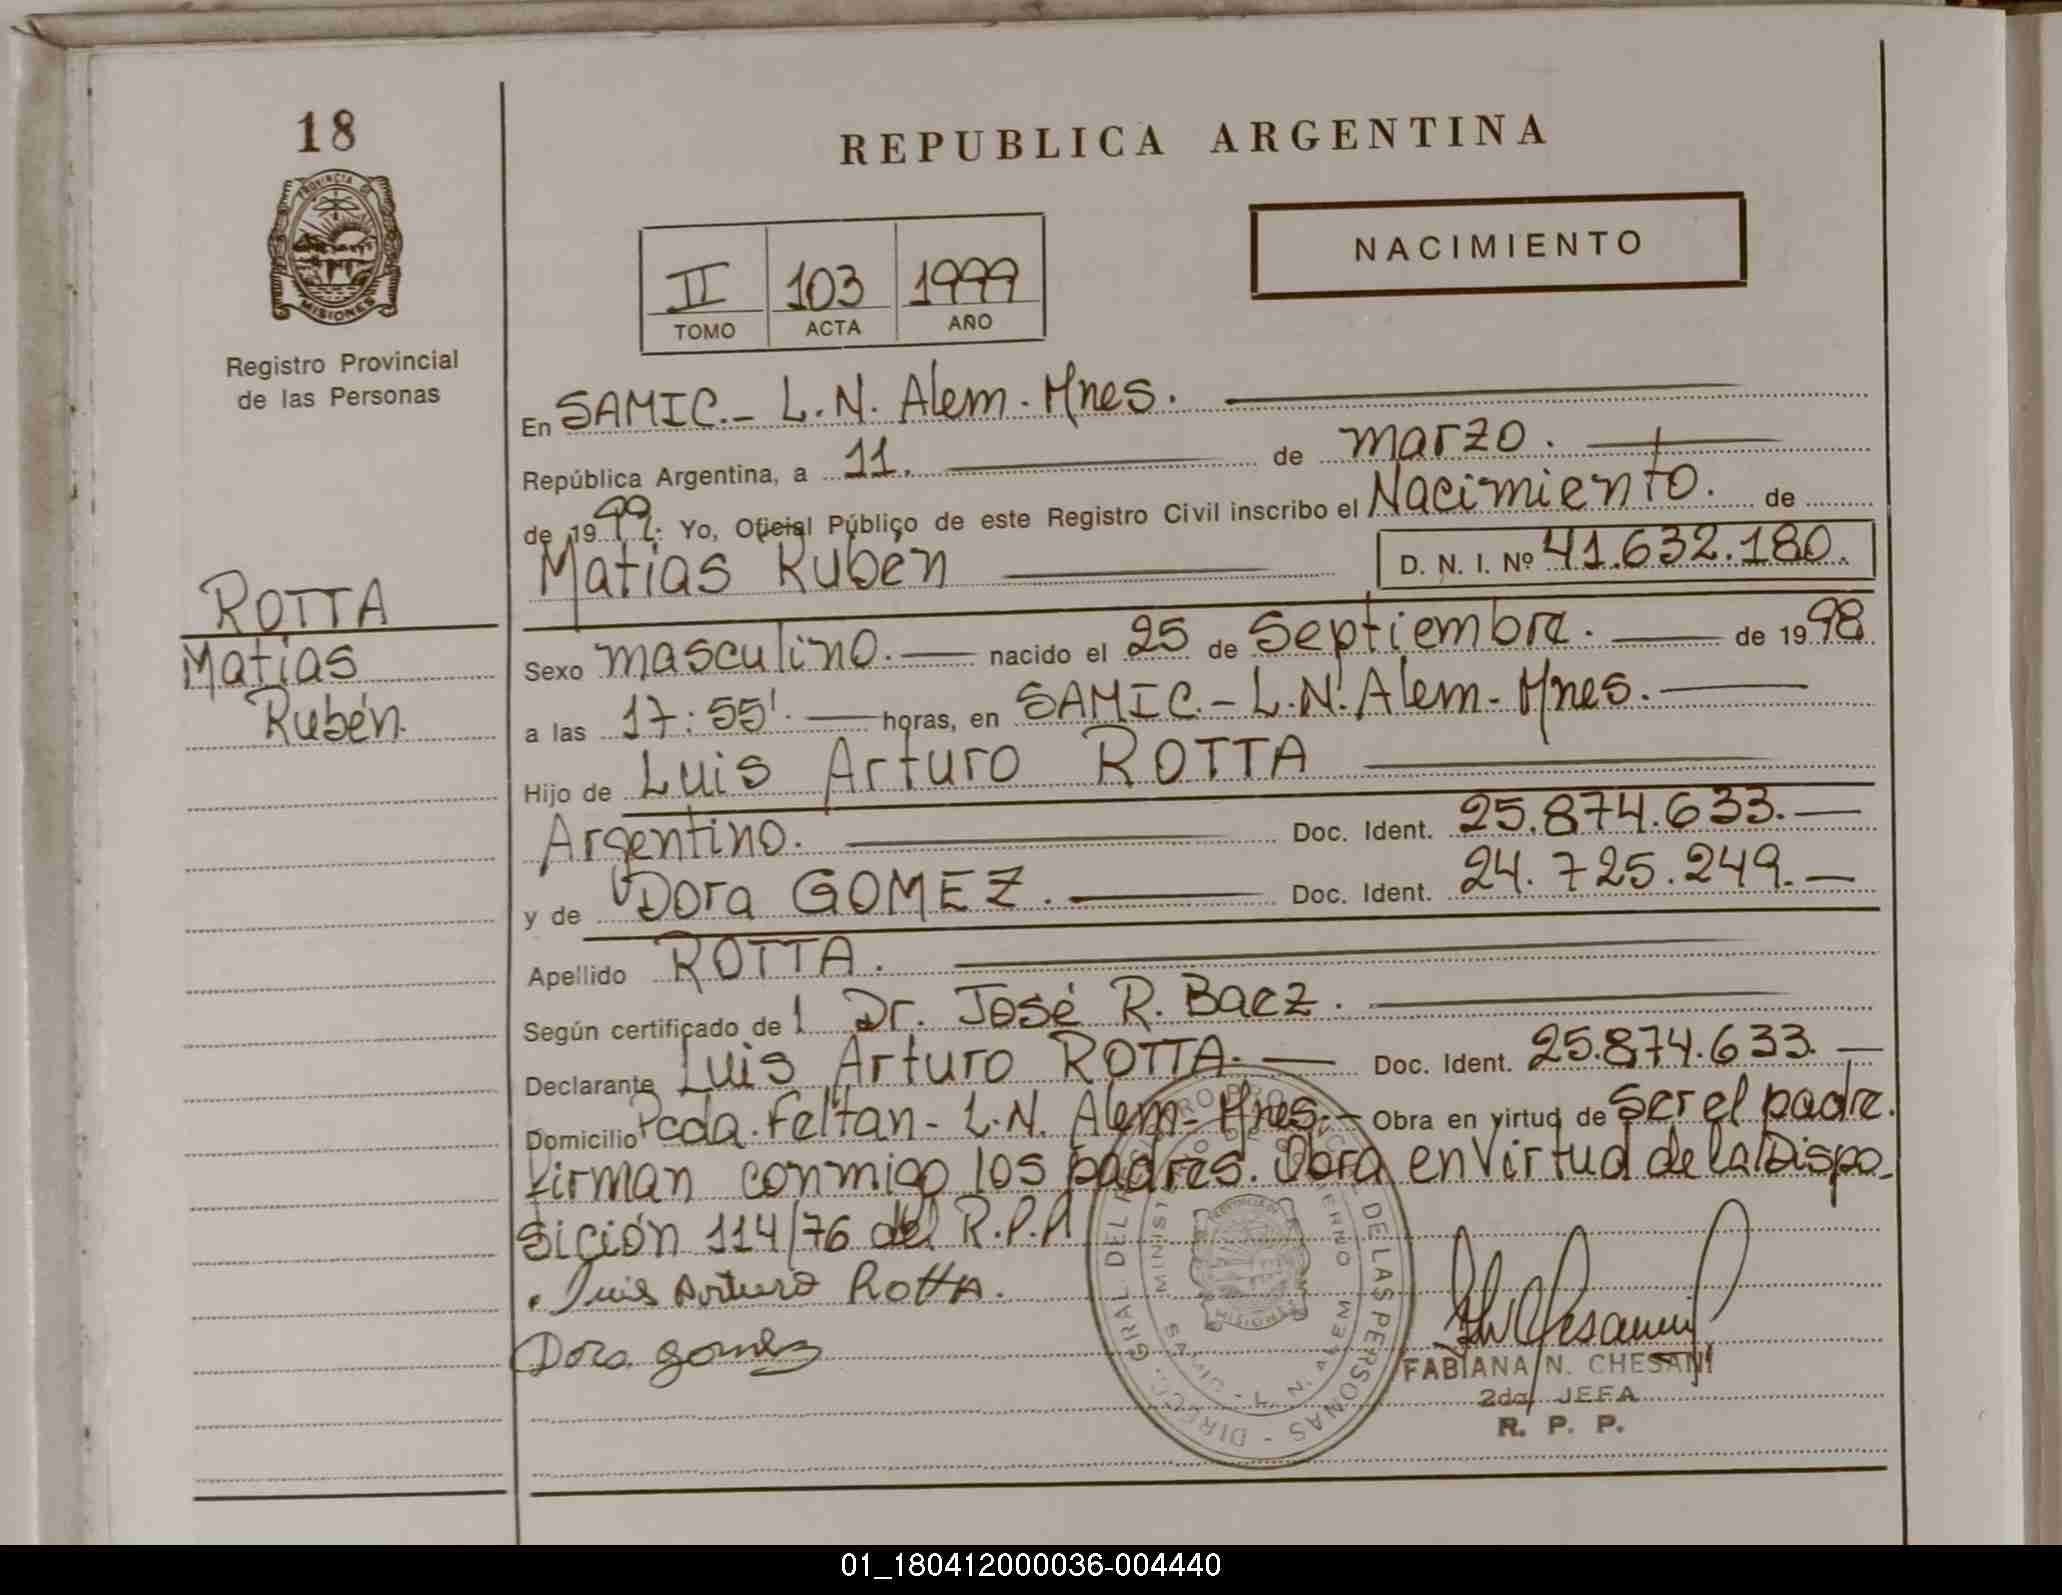 18
REPUBLICA ARGENTINA
PROVINCIA DE
MISIONES
Registro Provincial
de las Personas
NACIMIENTO
II 103 1999
TOMO ACTA AÑO
En SAMIC.- L.N. Alem - Mnes.
República Argentina, a 11. de marzo.
de 1999. Yo, Oficial Público de este Registro Civil inscribo el Nacimiento. de
Matías Rubén D. N. I. Nº 41.632.180.
ROTTA
Matías
Rubén.
Sexo masculino. nacido el 25 de Septiembre. de 1998
a las 17:55'. horas, en SAMIC.- L.N. Alem- Mnes.
Hijo de Luis Arturo ROTTA
Argentino. Doc. Ident. 25.874.633.
y de Dora GOMEZ. Doc. Ident. 24.725.249.
Apellido ROTTA.
Según certificado de l Dr. José R. Baez.
Declarante Luis Arturo ROTTA. Doc. Ident. 25.874.633.
Domicilio Pcda. Feltan- L.N. Alem- Mnes.- Obra en virtud de Ser el padre.
Firman conmigo los padres. Obra en Virtud de la Dispo-
sición 114/76 del R.P.P
Luis Arturo Rotta.
Dora gomez
FABIANA N. CHESANI
2da JEFA
R. P. P.
01_180412000036-004440